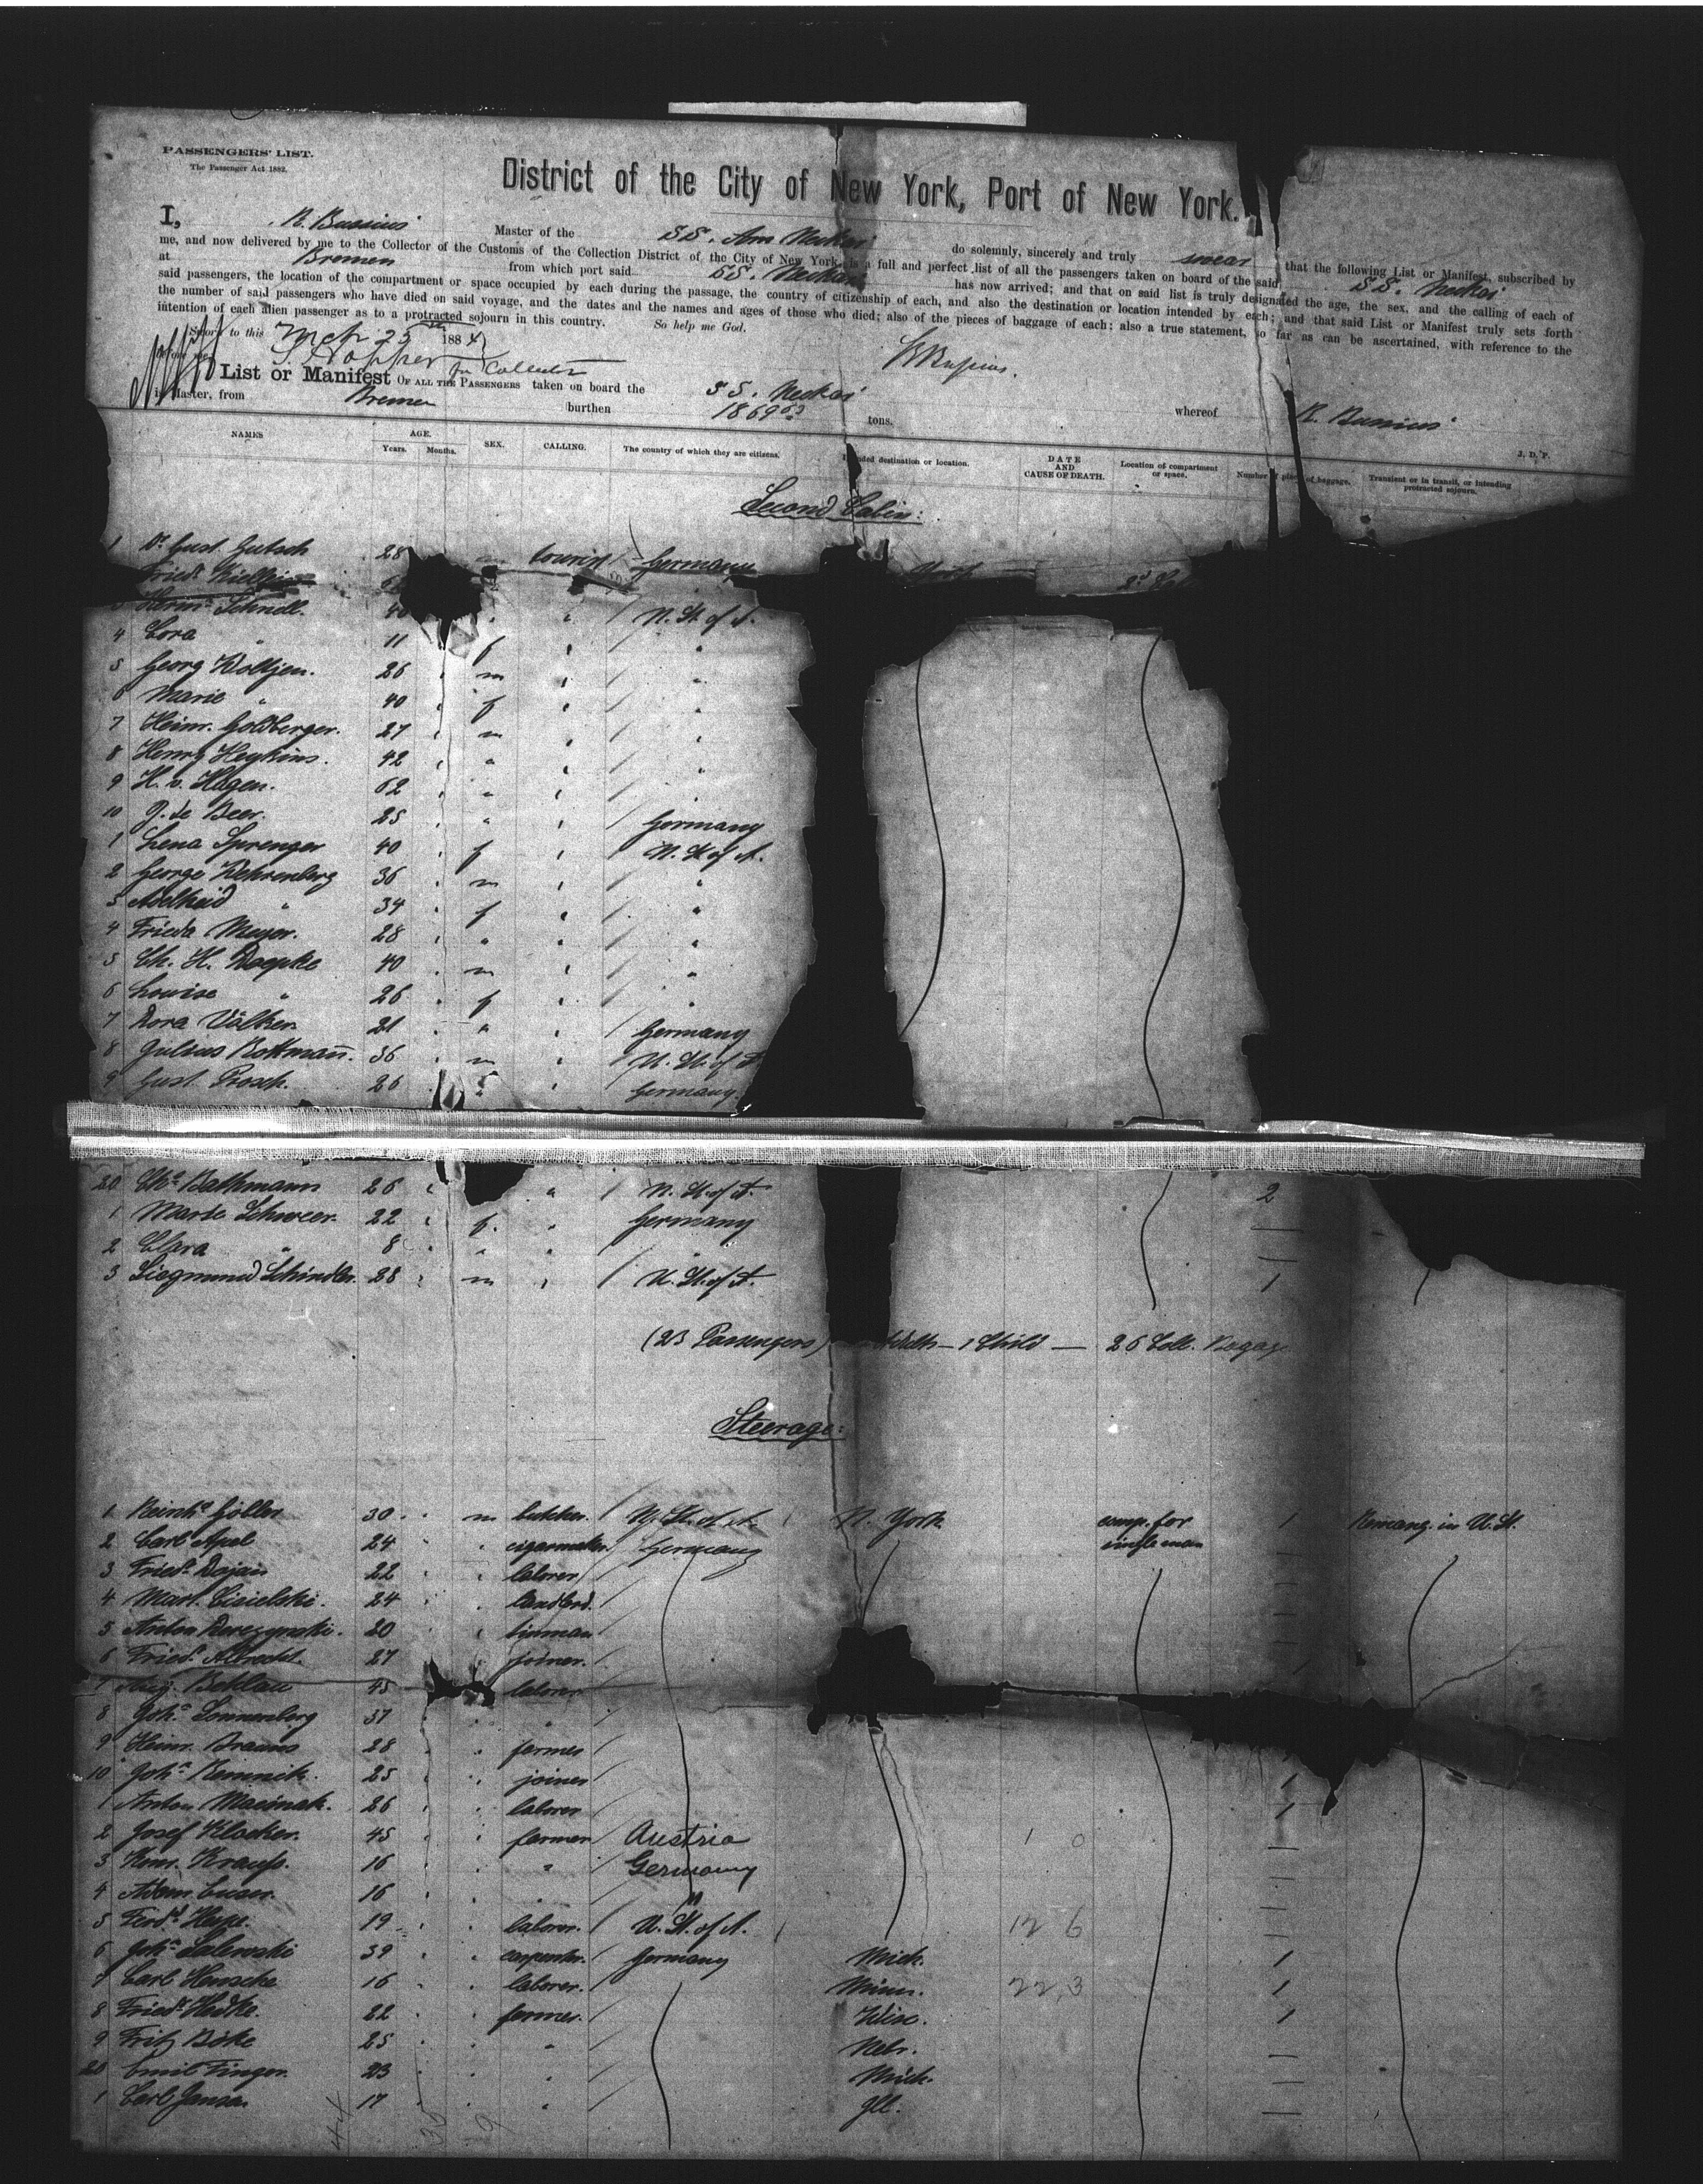 PASSENGERS' LIST.
The Passenger Act 1882.
District of the City of New York, Port of New York.
I, R. Bussius Master of the S.S. Am Neckar do solemnly, sincerely and truly swear that the following List or Manifest, subscribed by
me, and now delivered by me to the Collector of the Customs of the Collection District of the City of New York, is a full and perfect list of all the passengers taken on board of the said S.S. Neckar
at Bremen from which port said S.S. Neckar has now arrived; and that on said list is truly designated the age, the sex, and the calling of each of
said passengers, the location of the compartment or space occupied by each during the passage, the country of citizenship of each, and also the destination or location intended by each; and that said List or Manifest truly sets forth
the number of said passengers who have died on said voyage, and the dates and the names and ages of those who died; also of the pieces of baggage of each; also a true statement, so far as can be ascertained, with reference to the
intention of each alien passenger as to a protracted sojourn in this country. So help me God.
Sworn to this Mch 25th 1884
for Collector
R Bussius.
List or Manifest OF ALL THE PASSENGERS taken on board the S S. Neckar whereof R. Bussius
is Master, from Bremen burthen 1869 tons.
NAMES AGE. Years. Months. SEX. CALLING. The country of which they are citizens. Intended destination or location. DATE AND CAUSE OF DEATH. Location of compartment or space. Number of pieces of baggage. Transient or in transit, or intending protracted sojourn.
J. D. P.
Second Cabin:
1 Dr. Gust. Gutsch 28 tourist Germany
Friedr.
3 Herm. Schnell. 40 U. St. of A.
4 Cora " 11 f "
5 Georg Woltjen. 26 m "
6 Marie " 40 f "
7 Heinr. Goldberger. 27 m "
8 Henry Heykins. 42 " "
9 H. v. Hagen. 62 " "
10 J. de Beer. 25 " Germany
1 Lena Sprenger 40 f U. St. of A.
2 George Rehrenberg 36 m "
3 Adelheid " 34 f "
4 Frieda Meyer. 28 " "
5 Ch. H. Doepke 40 m "
6 Louise " 26 f "
7 Dora Völker 21 " Germany
8 Julius Rottmann. 36 m U. St. of A.
9 Gust. Prosch. 26 " Germany.
20 Chr. Bathmann 26 " U. St. of A. 2
1 Marie Schweer. 22 f. " Germany
2 Clara " 8 " " "
3 Siegmund Schindler. 28 m " U. St. of A. 1
(23 Passengers) Adults — 1 Child — 26 Coll. Bagag
Steerage:
1 Reinhd. Göller 30 m butcher. U. St. of A. N. York comp. for single man 1 Remang. in U. St.
2 Carl Apel 24 " cigarmaker. Germany
3 Friedr. Dajan 22 " laborer
4 Mart. Cisielski. 24 " landlord.
5 Anton Derezynski. 20 " tinman
6 Friedr. Albrecht. 27 joiner.
7 Aug. Beklau 45 laborer
8 Joh. Sonnenberg 37 "
9 Heinr. Brauns 28 " farmer
10 Joh. Remnik. 25 " joiner 1
1 Anton Macinak. 26 " laborer 1
2 Josef Klocker. 45 " farmer Austria
3 Konr. Krauss. 16 " " Germany
4 Adam Cuser. 16 " " "
5 Ferd. Heype. 19 " laborer. U. St. of A.
6 Joh. Salewski 39 " carpenter. Germany Mich. 1
7 Carl Henschke 16 " laborer. Minn. 1
8 Friedr. Hedke. 22 " farmer. Wisc. 1
9 Fritz Böke 25 " " Nebr.
20 Emil Finger. 23 " " Mich.
1 Carl Jansen 17 " " Ill.